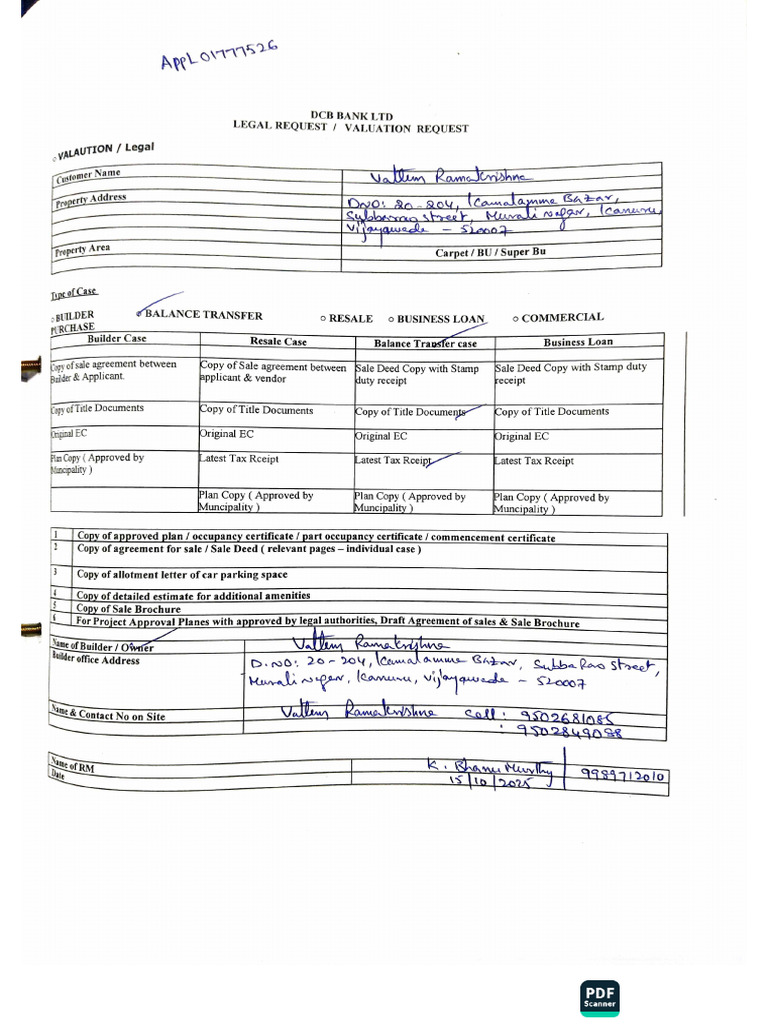 AppL01777526
DCB BANK LTD
LEGAL REQUEST / VALUATION REQUEST
○ VALAUTION / Legal
Customer Name Vattem Ramakrishna
Property Address D.NO: 20-204, Kamalamma Bazar,
Subbarao street, Murali nagar, Kanuru,
Vijayawada - 520007
Property Area Carpet / BU / Super Bu
Type of Case
○ BUILDER PURCHASE ○ BALANCE TRANSFER ○ RESALE ○ BUSINESS LOAN ○ COMMERCIAL
Builder Case Resale Case Balance Transfer case Business Loan
Copy of sale agreement between Builder & Applicant. Copy of Sale agreement between applicant & vendor Sale Deed Copy with Stamp duty receipt Sale Deed Copy with Stamp duty receipt
Copy of Title Documents Copy of Title Documents Copy of Title Documents Copy of Title Documents
Original EC Original EC Original EC Original EC
Plan Copy ( Approved by Muncipality ) Latest Tax Rceipt Latest Tax Rceipt Latest Tax Rceipt
Plan Copy ( Approved by Muncipality ) Plan Copy ( Approved by Muncipality ) Plan Copy ( Approved by Muncipality )
1 Copy of approved plan / occupancy certificate / part occupancy certificate / commencement certificate
2 Copy of agreement for sale / Sale Deed ( relevant pages – individual case )
3 Copy of allotment letter of car parking space
4 Copy of detailed estimate for additional amenities
5 Copy of Sale Brochure
6 For Project Approval Planes with approved by legal authorities, Draft Agreement of sales & Sale Brochure
Name of Builder / Owner Vattem Ramakrishna
Builder office Address D.NO: 20-204, Kamalamma Bazar, Subba Rao Street,
Murali nagar, Kanuru, Vijayawada - 520007
Name & Contact No on Site Vattem Ramakrishna Cell: 9502681085
: 9502849088
Name of RM K. Bhanu Murthy 9989712010
Date 15/10/2025
PDF
Scanner